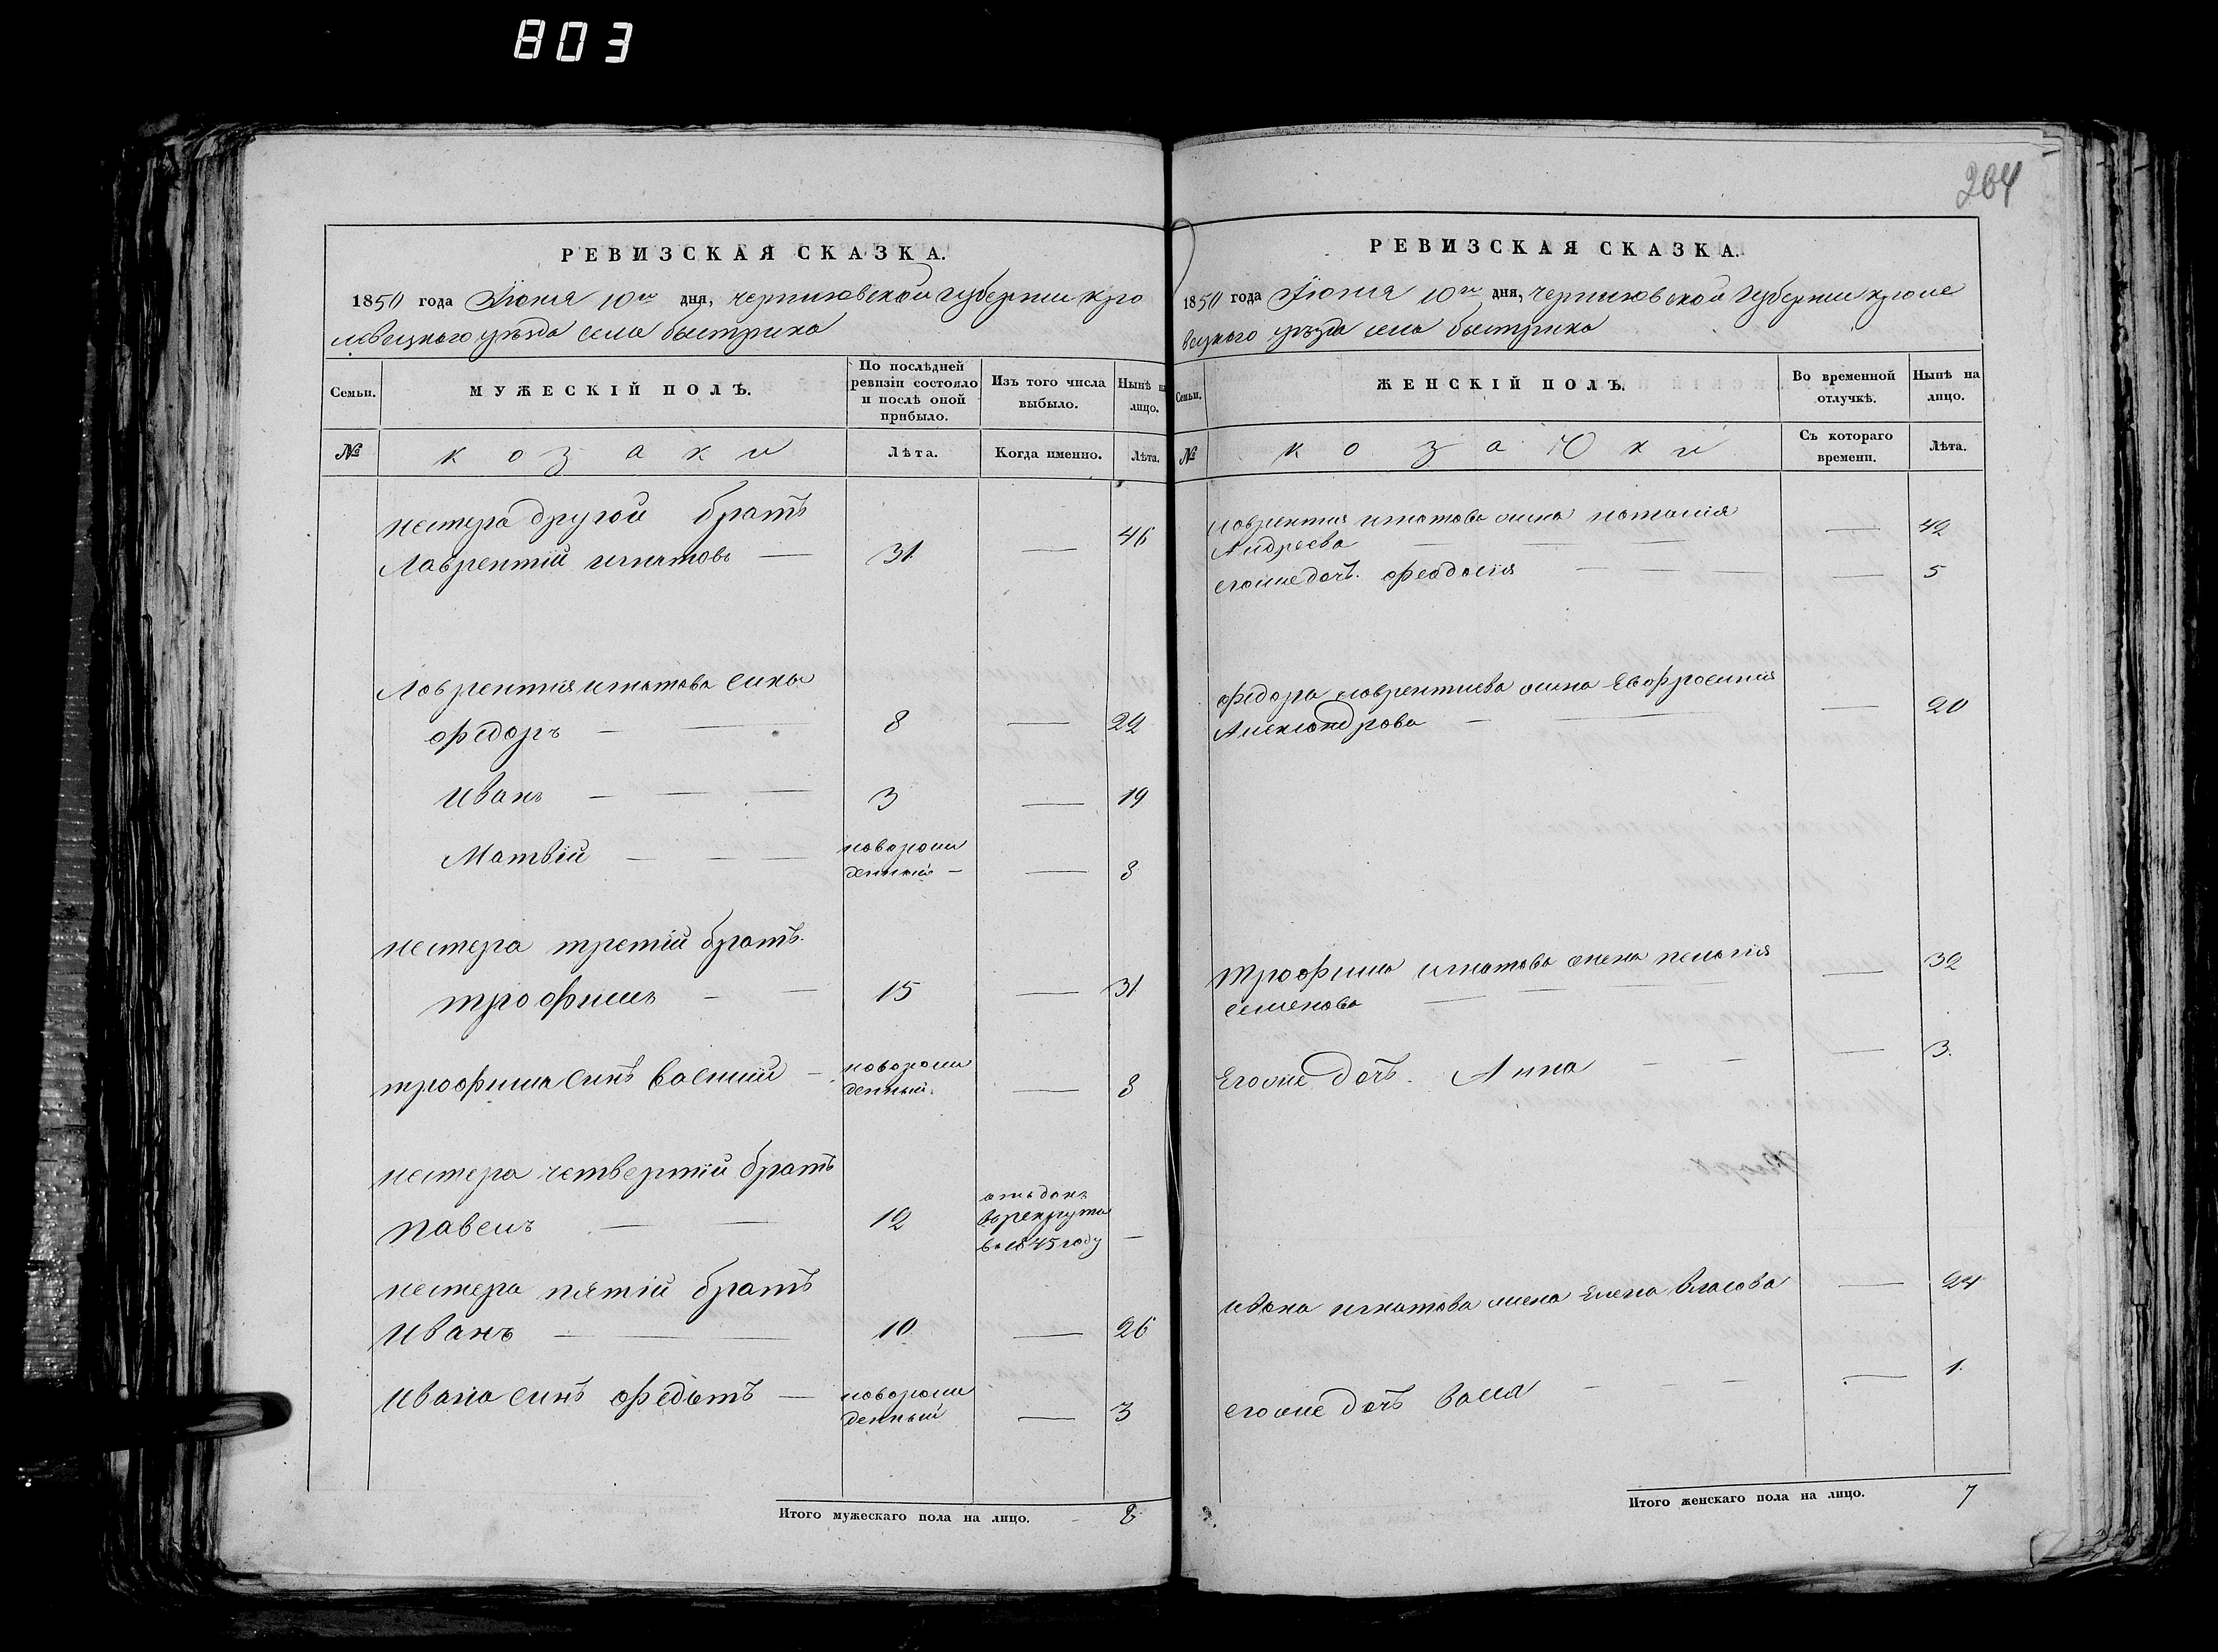 803
264
РЕВИЗСКАЯ СКАЗКА.
1850 года Июня 10го дня, черниговской губернии кро
левецкого уѣзда села быстрика
Семьи.
МУЖЕСКІЙ ПОЛЪ.
По послѣдней ревизіи состояло и послѣ оной прибыло.
Изъ того числа выбыло.
Нынѣ на лицо.
№
козаки
Лѣта.
Когда именно.
Лѣта.
нестера другой братъ 46
Лаврентій игнатовъ — 31 —
Лаврентия игнатова сины
федоръ — — 8 — 22
Иванъ — — — 3 — 19
Матвій — — — новорож
денный — — 8
нестера третій братъ.
трофимъ — — 15 — 31
трофима синъ василий — новорож
денный. — 8
нестера четвертій братъ
павелъ — — 12 отъданъ
въ рекруты
въ 1845 году —
нестера пятій братъ
Иванъ — — 10 — 26
Ивана синъ федотъ — новорож
денный — 3
Итого мужескаго пола на лицо. 8
РЕВИЗСКАЯ СКАЗКА.
1850 года Июня 10го дня, черниговской губернии кроле
вецкого уѣзда села быстрика
Семьи.
ЖЕНСКІЙ ПОЛЪ.
Во временной отлучкѣ.
Нынѣ на лицо.
№
козачки
Съ котораго времени.
Лѣта.
лаврентия игнатова жена наталія
Андреева — — — — 42
егоже дочъ. феодосія — — — — 5
федора лаврентиева жена Евфросиния
Александрова — — — 20
трофима игнатова жена пелагія
семенова — — — — 32
Егоже дочъ. Анна — — — 3.
ивана игнатова жена Елена власова — 24
егоже дочъ васса — — — — 1.
Итого женскаго пола на лицо. 7